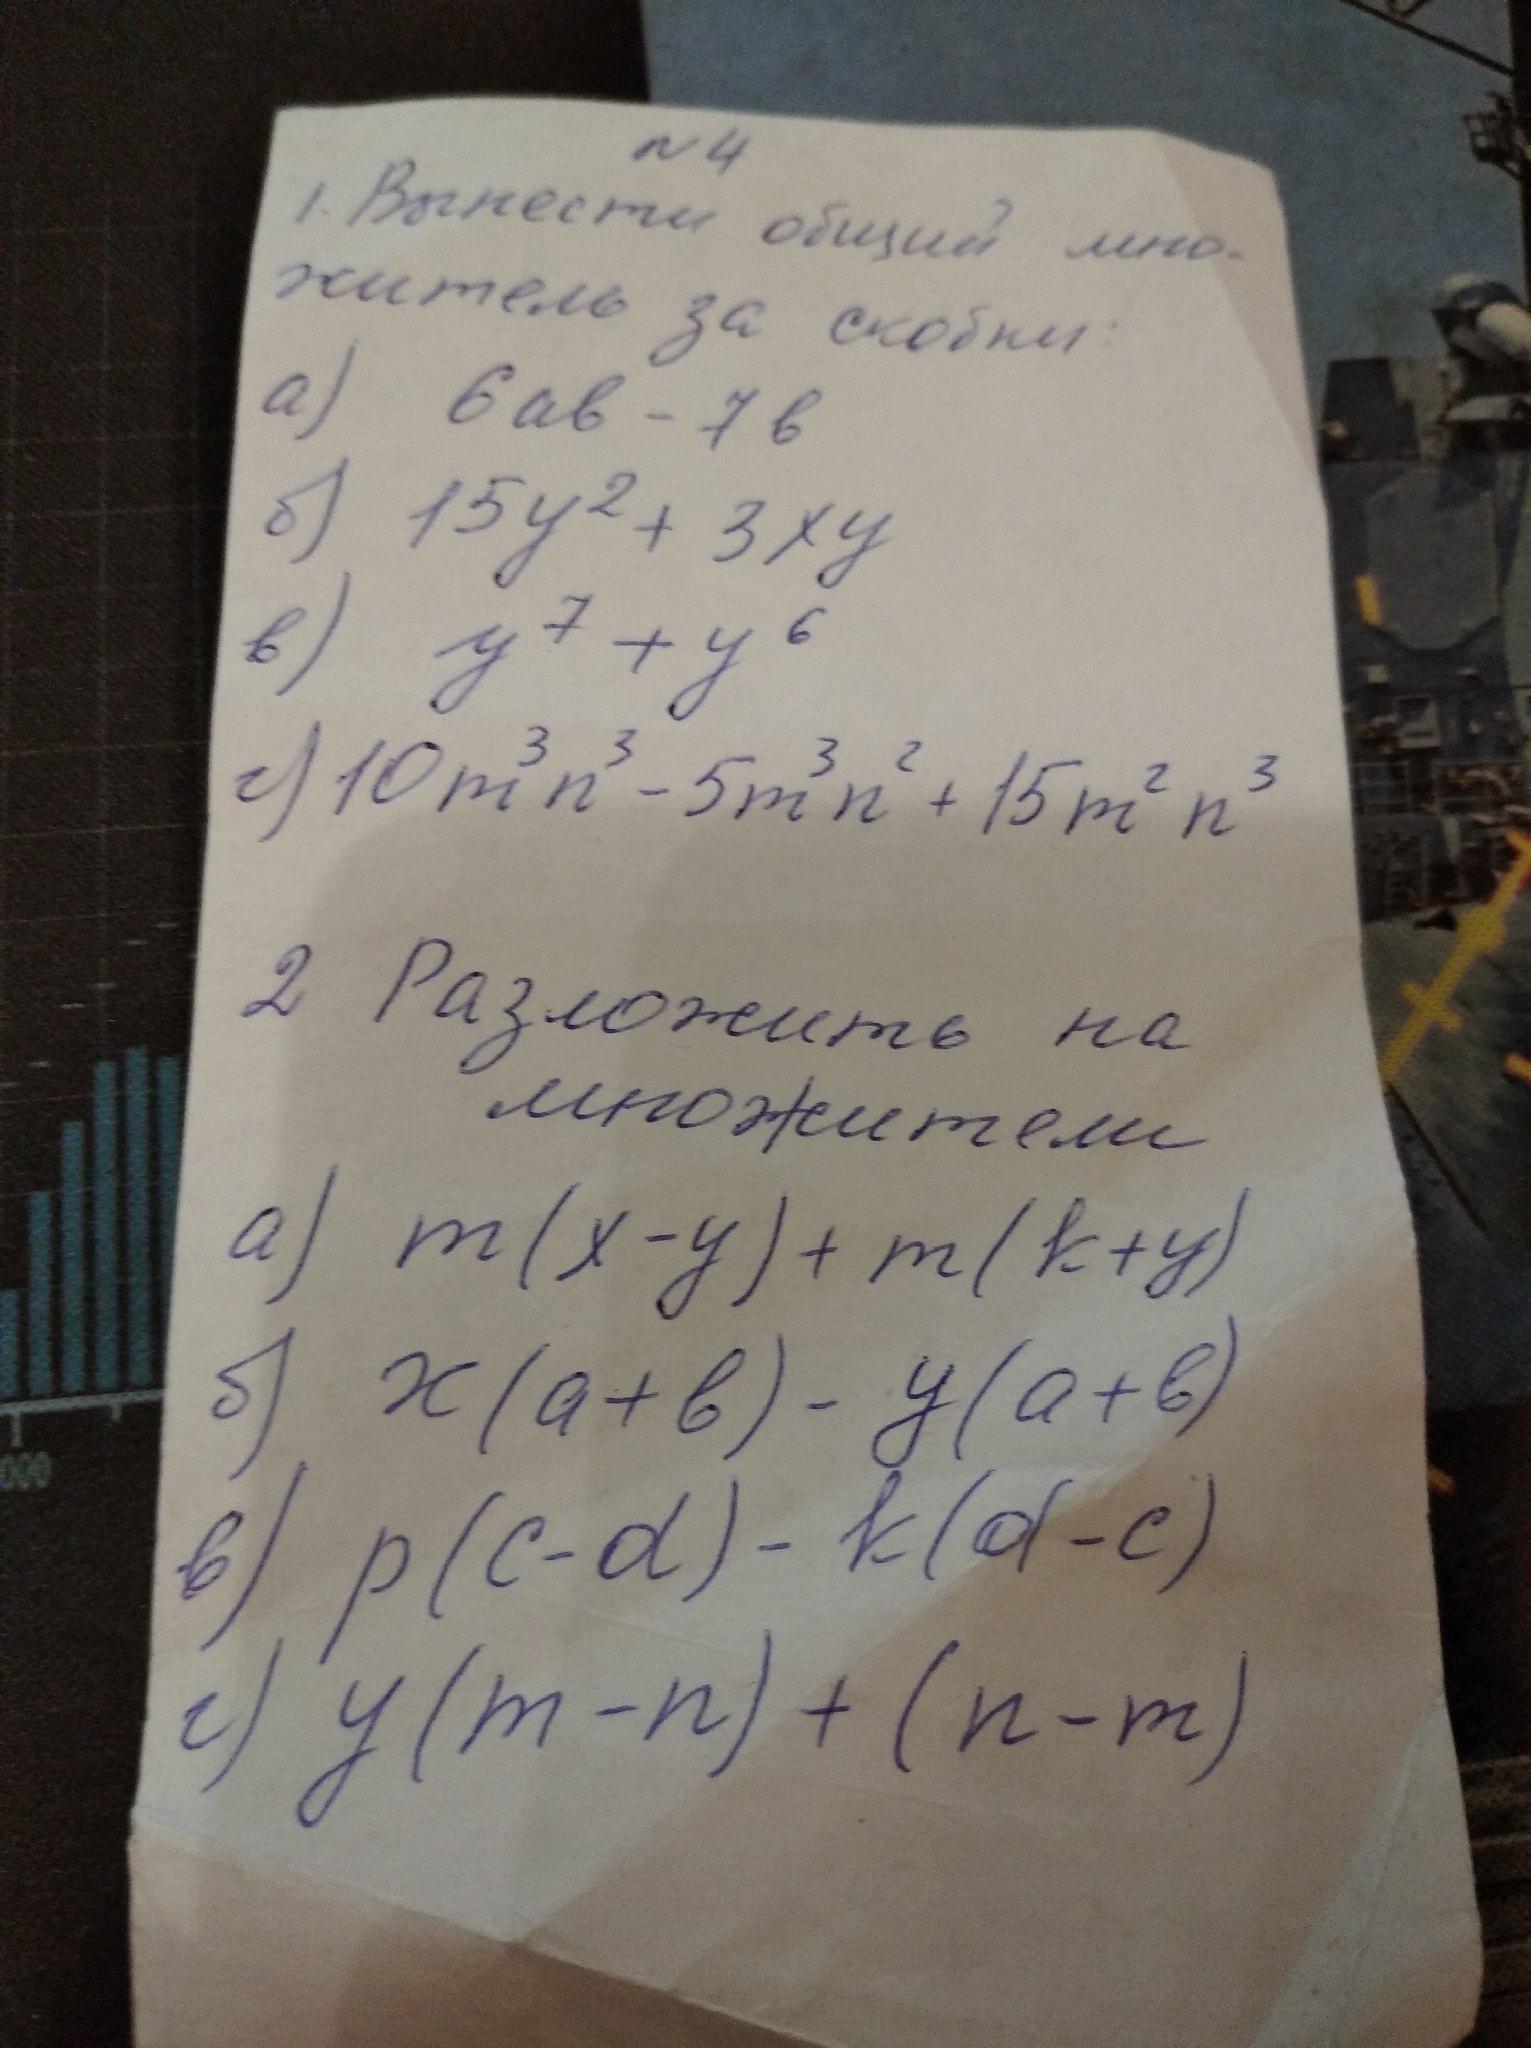 n 4
1. Вынести общий мно-
житель за скобки:
а) 6ав - 7в
б) 15y² + 3xy
в) y⁷ + y⁶
г) 10m³n³ - 5m³n² + 15m²n³
2 Разложить на
множители
а) m(x-y) + m(k+y)
б) x(a+в) - y(a+в)
в) p(c-d) - k(d-c)
г) y(m-n) + (n-m)
000